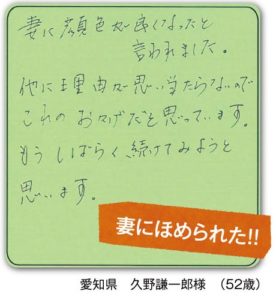 妻に顔色が良くなったと
言われました。
他に理由が思い当たらないので
これの おかげだと思っています。
もう しばらく続けてみようと
思います。
妻にほめられた!!
愛知県 久野謙一郎様 (52歳)